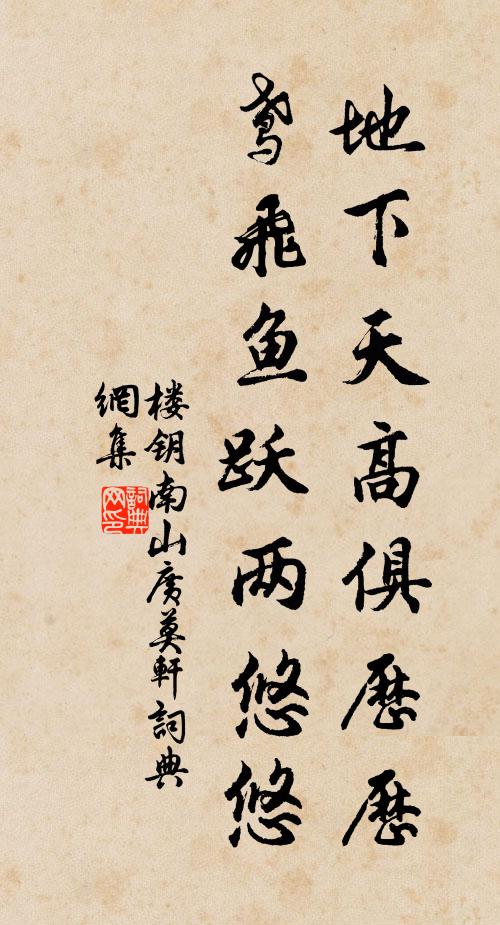 地下天高俱歷歷
鸢飛鱼跃两悠悠
楼钥南山廣莫軒詞典
網集
詞典
网印